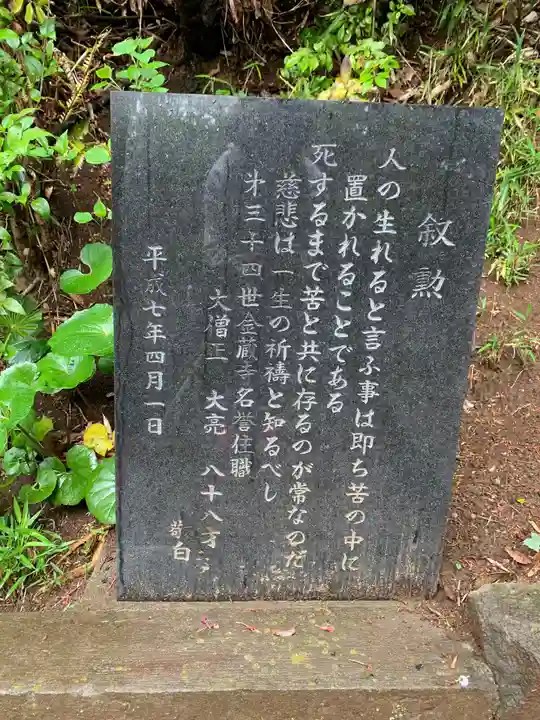 叙勲
人の生れると言ふ事は即ち苦の中に
置かれることである
死するまで苦と共に存るのが常なのだ
慈悲は一生の祈禱と知るべし
㐧三十四世金蔵寺名誉住職
大僧正 大亮 八十八才
白
平成七年四月一日